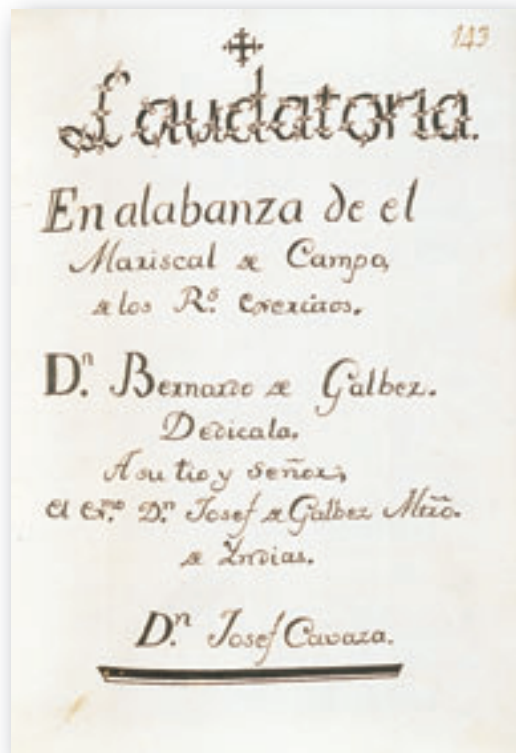 143
Laudatoria.
En alabanza de el
Mariscal de Campo,
de los R.s Exercitos.
D.n Bernardo de Galbez.
Dedicala.
A su tio y Señor,
el Ex.mo D.n Josef de Galbez Mtrõ.
de Yndias.
D.n Josef Cavaza.